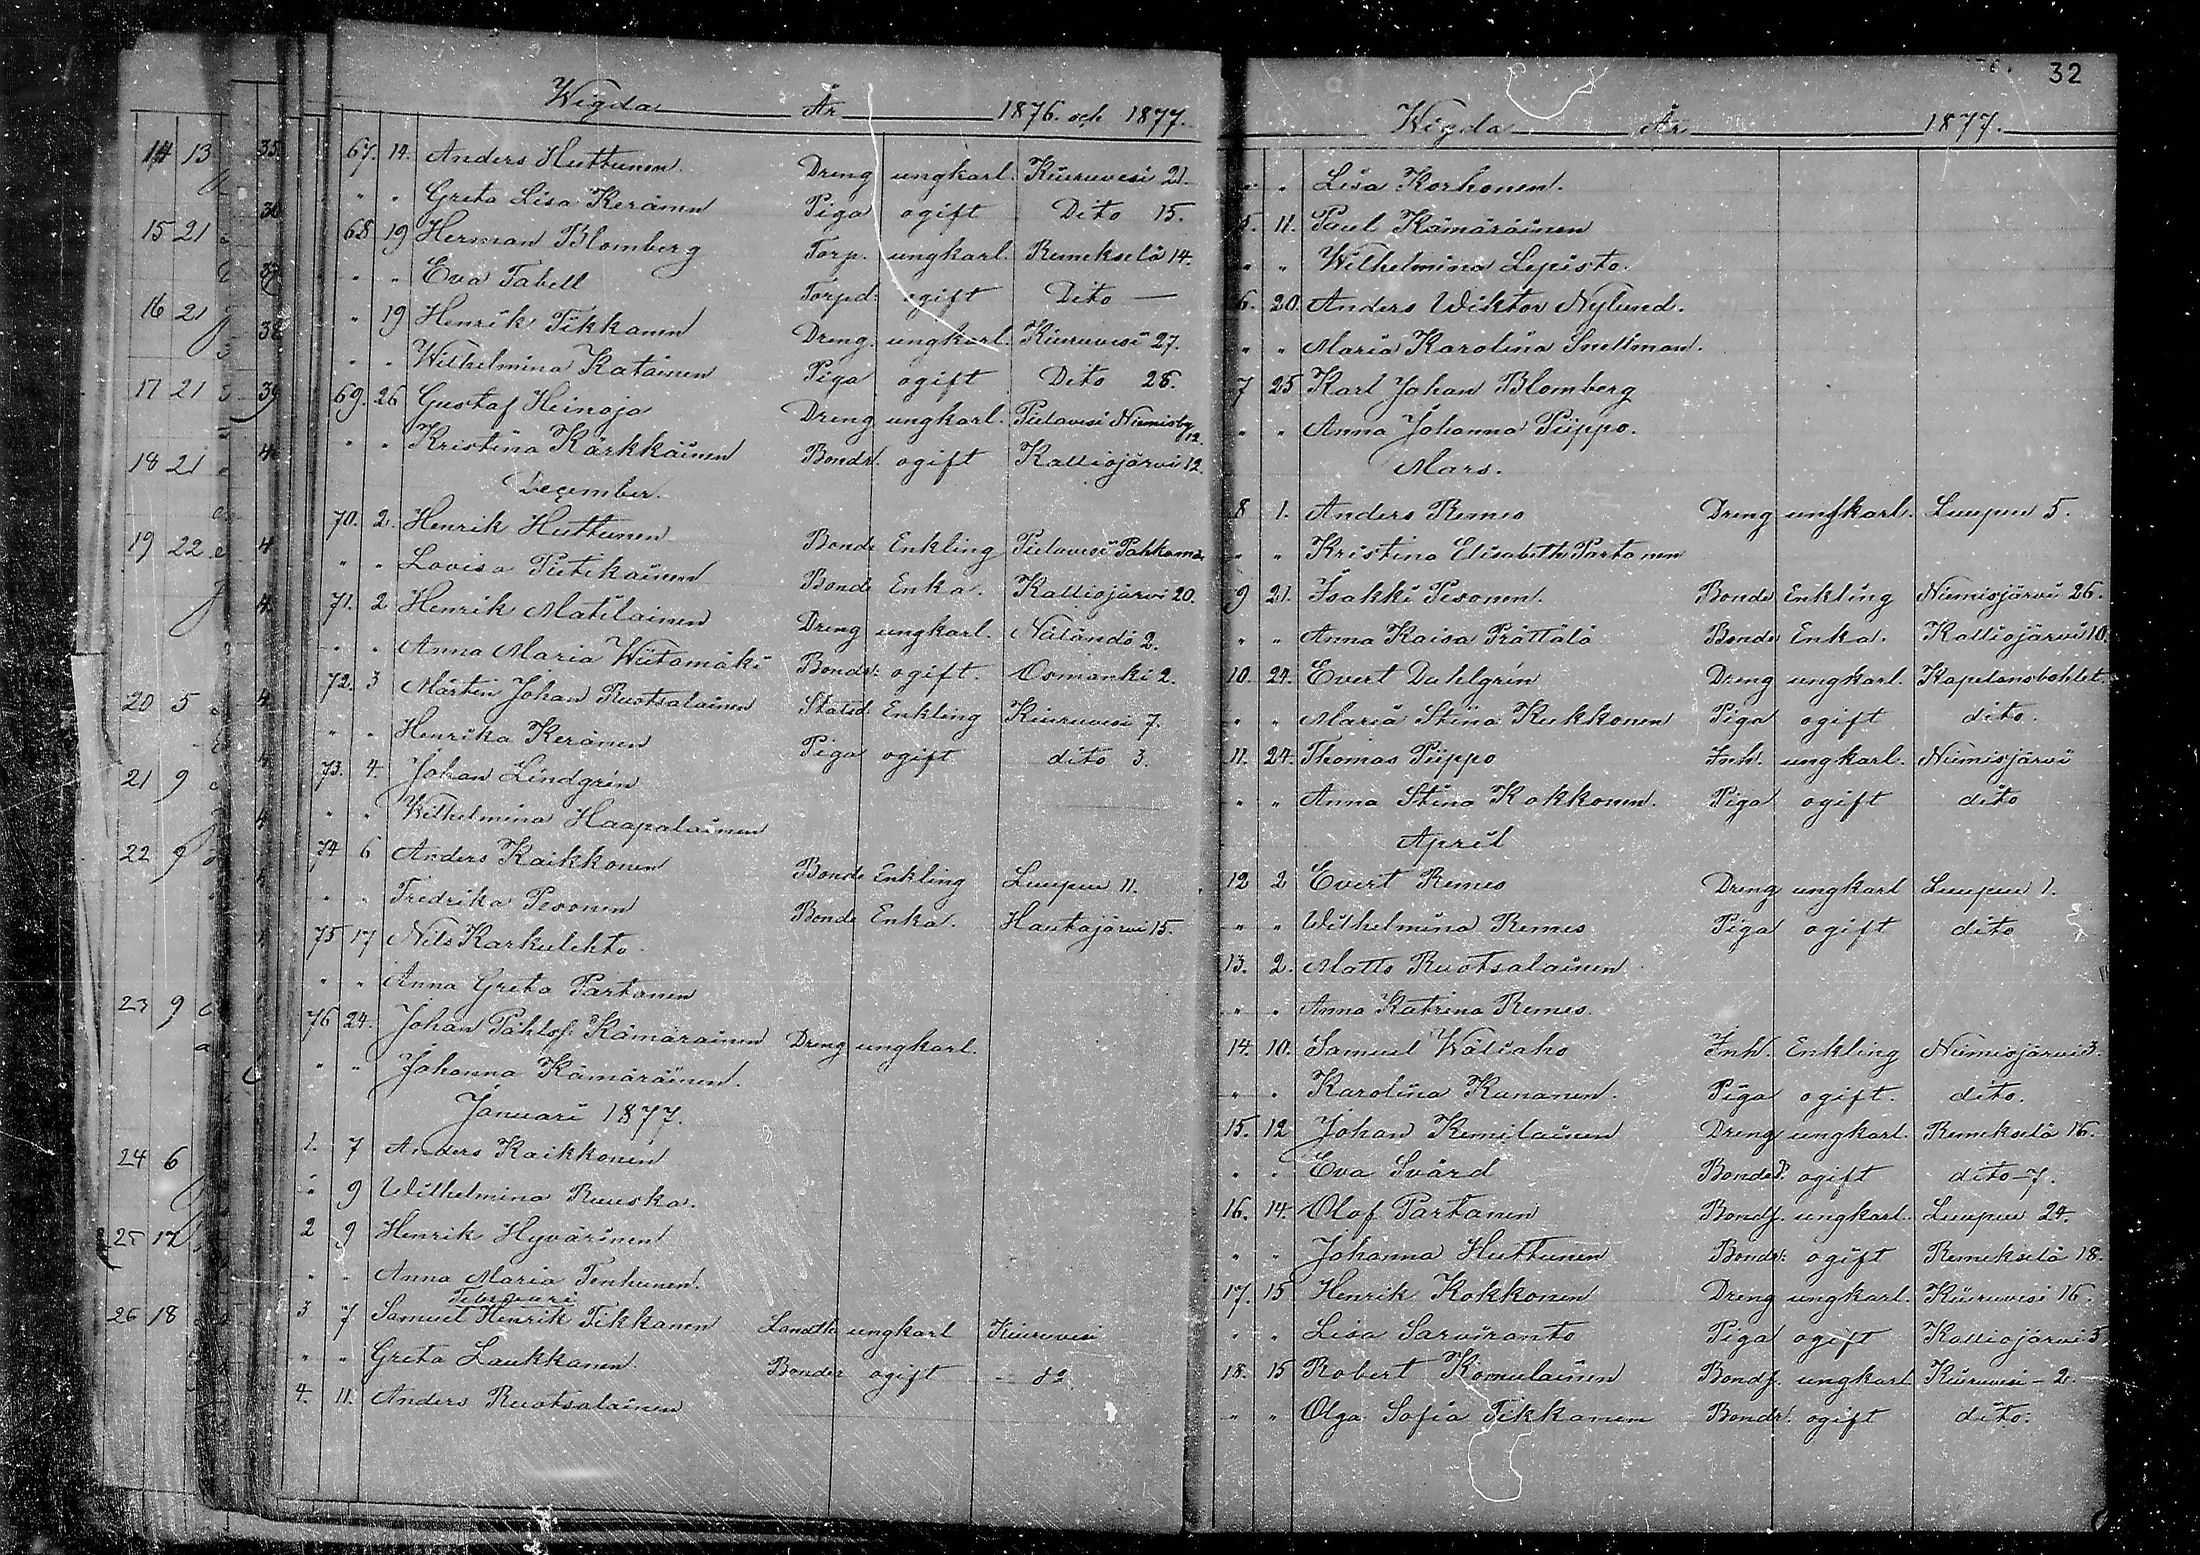 Wigda År 1876. och 1877.
67. 14. Anders Huttunen. Dreng ungkarl. Kiuruvesi 21.
" " Greta Lisa Keränen Piga ogift Dito 15.
68 19 Herman Blomberg Torp. ungkarl. Remekselä 14.
" " Eva Tabell Torpd: ogift Dito —
" 19 Henrik Tikkanen Dreng. ungkarl. Kiuruvesi 27.
" " Wilhelmina Katainen Piga ogift Dito 28.
69. 26 Gustaf Heinoja Dreng ungkarl. Pielavesi Niemisby 12.
" " Kristina Kärkkäinen Bondd. ogift Kalliojärvi 12.
December.
70. 2. Henrik Huttunen Bonde Enkling Pielavesi
" " Lovisa Putikainen Bonde Enka. Kalliojärvi 20.
71. 2 Henrik Matilainen Dreng ungkarl. Näländö 2.
" " Anna Maria Wiitamäki Bondd: ogift. Osmanki 2.
72. 3 Mårten Johan Ruotsalainen Statsd. Enkling Kiuruvesi 7.
" " Henrika Keränen Piga ogift dito 3.
73. 4. Johan Lindgrén
" " Wilhelmina Haapalainen
74 6 Anders Kaikkonen Bonde Enkling Luupu 11.
" " Fredrika Pesonen Bonde Enka. Hautajärvi 15.
75 17 Nils Karkulehto.
" " Anna Greta Partanen
76 24. Johan Påhlsf. Kämäräinen Dreng ungkarl.
" " Johanna Kämäräinen.
Januari 1877.
1. 7 Anders Kaikkonen
" 9 Wilhelmina Ruuska.
2 9 Henrik Hyvärinen
" " Anna Maria Tenhunen.
Februari
3 7 Samuel Henrik Tikkanen ungkarl Kiuruvesi
" " Greta Laukkanen Bonded ogift
4. 11. Anders Ruotsalainen
32
Wigda År 1877.
" " Lisa Korhonen.
5. 11. Paul Kämäräinen
" " Wilhelmina Lepisto.
6. 20. Anders Wiktor Nylund.
" " Maria Karolina Snellman.
7 25 Karl Johan Blomberg
" " Anna Johanna Piippo.
Mars.
8 1. Anders Remes Dreng ungkarl. Luupu 5.
" " Kristina Elisabeth Partanen
9 21. Isakki Pesonen. Bonde Enkling Niemisjärvi 26.
" " Anna Kaisa Prättälä Bonde Enka. Kalliojärvi 10.
10. 24. Evert Dahlgrén Dreng ungkarl. Kapelansbohlet.
" " Maria Stina Kukkonen Piga ogift dito.
11. 24. Thomas Piippo Inh. ungkarl. Niemisjärvi
" " Anna Stina Kokkonen. Piga ogift dito
April
12 2 Evert Remes Dreng ungkarl Luupu 1.
" " Wilhelmina Remes Piga ogift dito
13. 2. Matts Ruotsalainen
" " Anna Katrina Remes.
14. 10. Samuel Wäliaho Inh. Enkling Niemisjärvi 3.
" " Karolina Kananen. Piga ogift. dito.
15. 12 Johan Kemilainen Dreng ungkarl. Remekselä 16.
" " Eva Svärd Bonded. ogift dito—7.
16. 14. Olof Partanen Bondf. ungkarl. Luupu 24.
" " Johanna Huttunen Bondd: ogift Remekselä 18.
17. 15 Henrik Kokkonen Dreng ungkarl. Kiuruvesi 16.
" " Lisa Sarviranto Piga ogift Kalliojärvi 5
18. 15 Robert Komulainen Bondf. ungkarl Kiuruvesi — 2.
" " Olga Sofia Tikkanen Bondd. ogift dito.